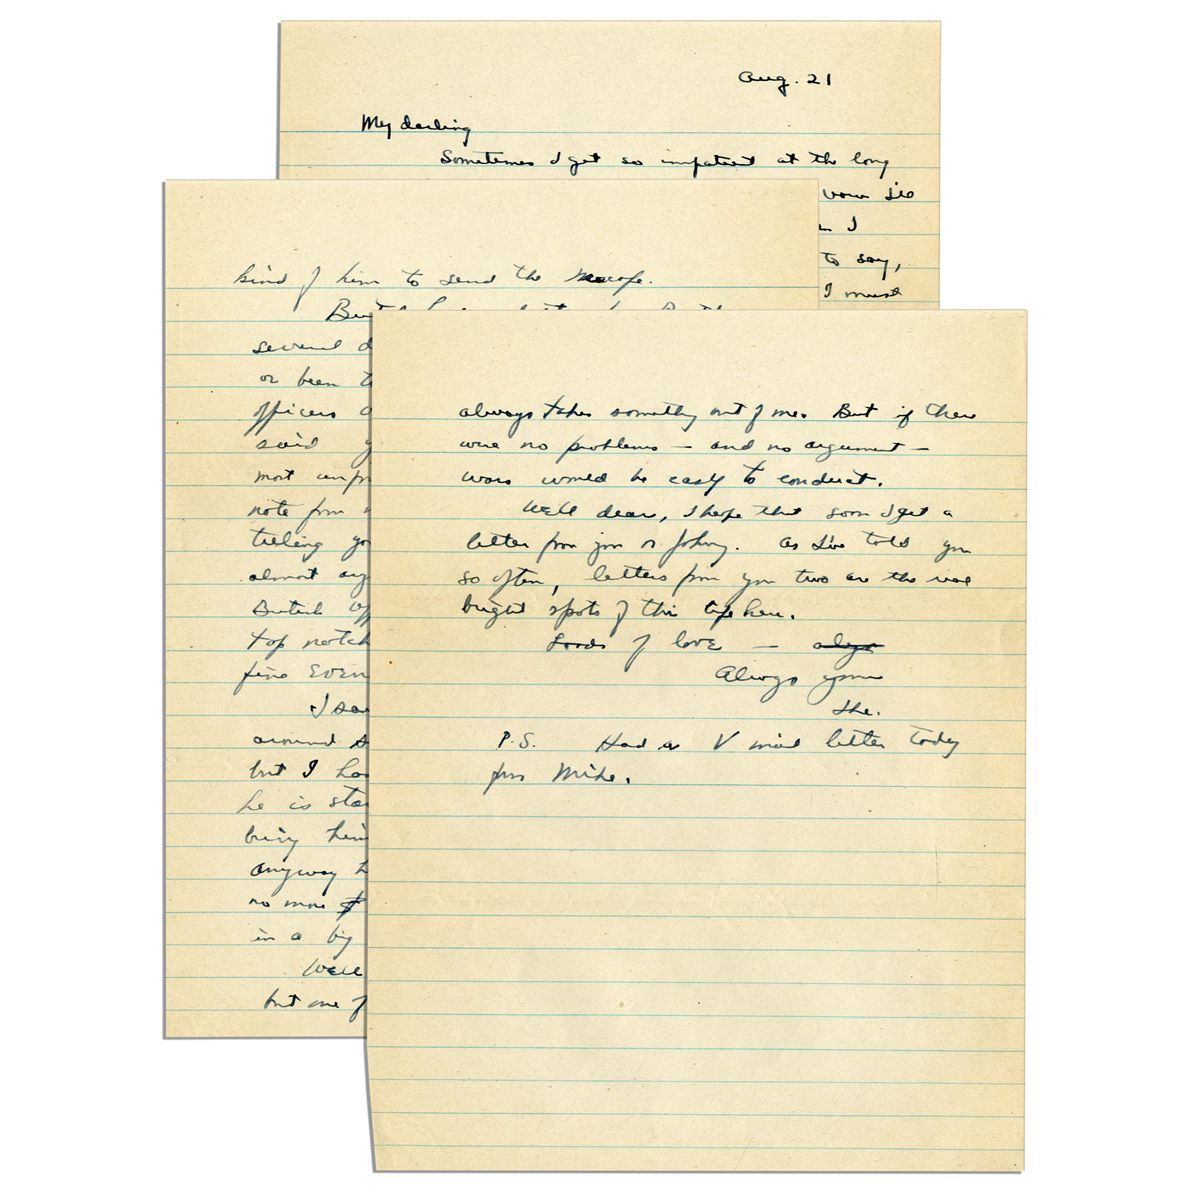 Aug. 21
My darling
Sometimes I get so impatient at the long
vows I's
I
to say,
I must
kind of him to send the
But
several d
or been t
officers
said y
most unpr
note from
telling yo
almost arg
British off
top notch
fine even
I saw
around
but I ha
he is sta
busy him
anyway h
no more
in a big
Well
but one of
always takes something out of me. But if there
were no problems - and no argument -
wars would be easy to conduct.
Well dear, I hope that soon I get a
letter from you or Johnny. As I've told you
so often, letters from you two are the real
bright spots of this here.
Loads of love -
Always yours
Ike.
P.S. Had a V mail letter today
from Mike.